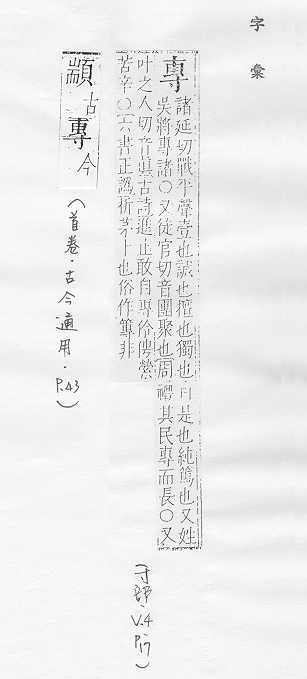 字彙
專
諸延切戰平聲壹也誠也擅也獨也自是也純篤也又姓
吳將專諸〇又徒官切音團聚也周禮其民專而長〇又
叶之人切音眞古詩進止敢自專伶俜縈
苦辛〇六書正譌折竹卜也俗作篿非
(寸部.V.4 P.17)
顓古專今
(首卷.古今適用.P.43)